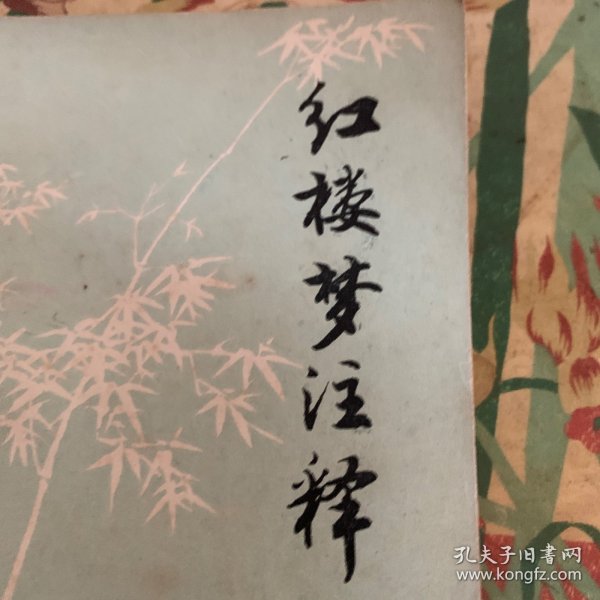 红楼梦注释
孔夫子旧書网
www.kongfz.com